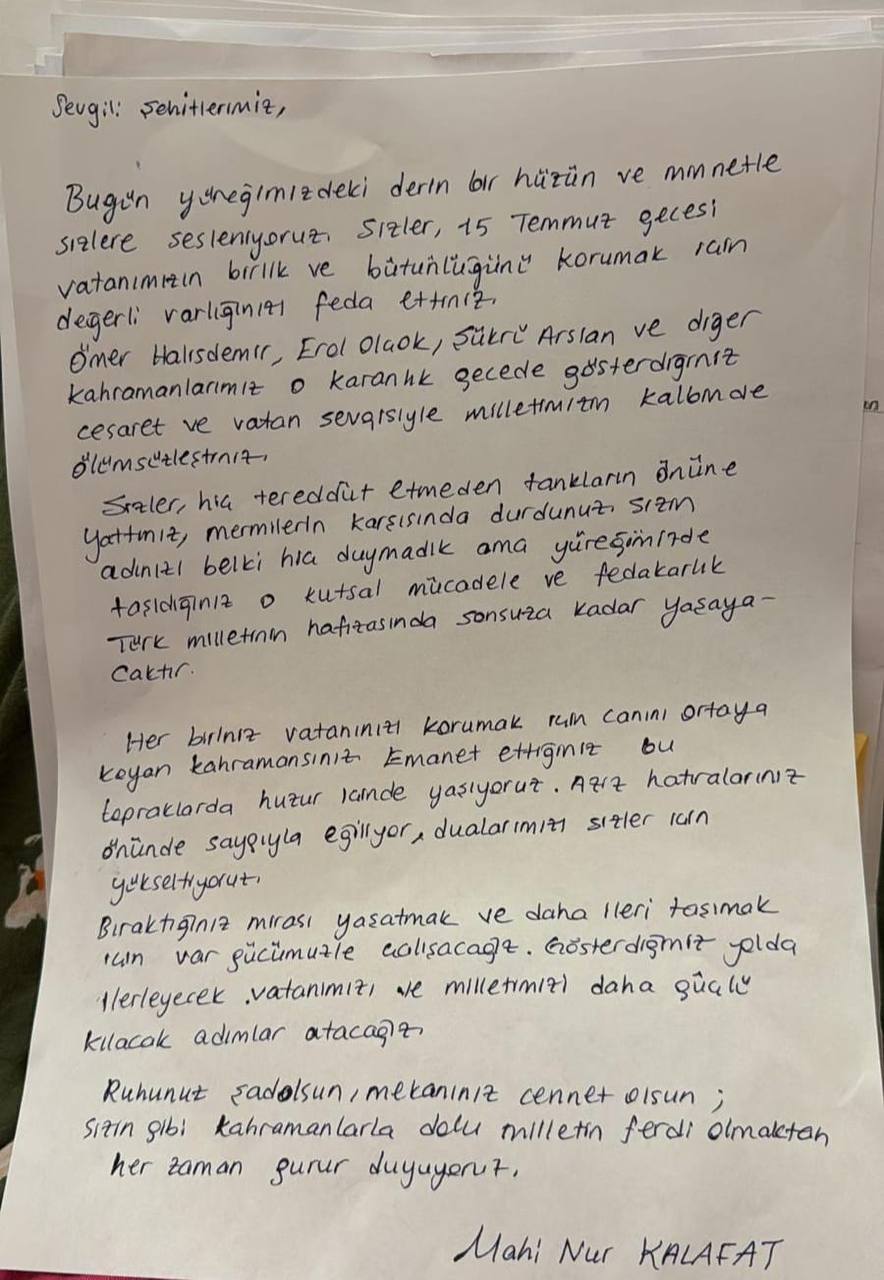 Sevgili şehitlerimiz,
Bugün yüreğimizdeki derin bir hüzün ve minnetle
sizlere sesleniyoruz. Sizler, 15 Temmuz gecesi
vatanımızın birlik ve bütünlüğünü korumak için
değerli varlığınızı feda ettiniz.
Ömer Halisdemir, Erol Olçok, Şükrü Arslan ve diğer
kahramanlarımız o karanlık gecede gösterdiğiniz
cesaret ve vatan sevgisiyle milletimizin kalbinde
ölümsüzleştiniz.
Sizler, hiç tereddüt etmeden tankların önüne
yattınız, mermilerin karşısında durdunuz. Sizin
adınızı belki hiç duymadık ama yüreğimizde
taşıdığınız o kutsal mücadele ve fedakarlık
Türk milletinin hafızasında sonsuza kadar yaşaya-
caktır.
Her biriniz vatanınızı korumak için canını ortaya
koyan kahramansınız. Emanet ettiğiniz bu
topraklarda huzur içinde yaşıyoruz. Aziz hatıralarınız
önünde saygıyla eğiliyor, dualarımızı sizler için
yükseltiyoruz.
Bıraktığınız mirası yaşatmak ve daha ileri taşımak
için var gücümüzle çalışacağız. Gösterdiğiniz yolda
ilerleyecek, vatanımızı ve milletimizi daha güçlü
kılacak adımlar atacağız.
Ruhunuz şadolsun, mekanınız cennet olsun ;
sizin gibi kahramanlarla dolu milletin ferdi olmaktan
her zaman gurur duyuyoruz.
Mahi Nur KALAFAT